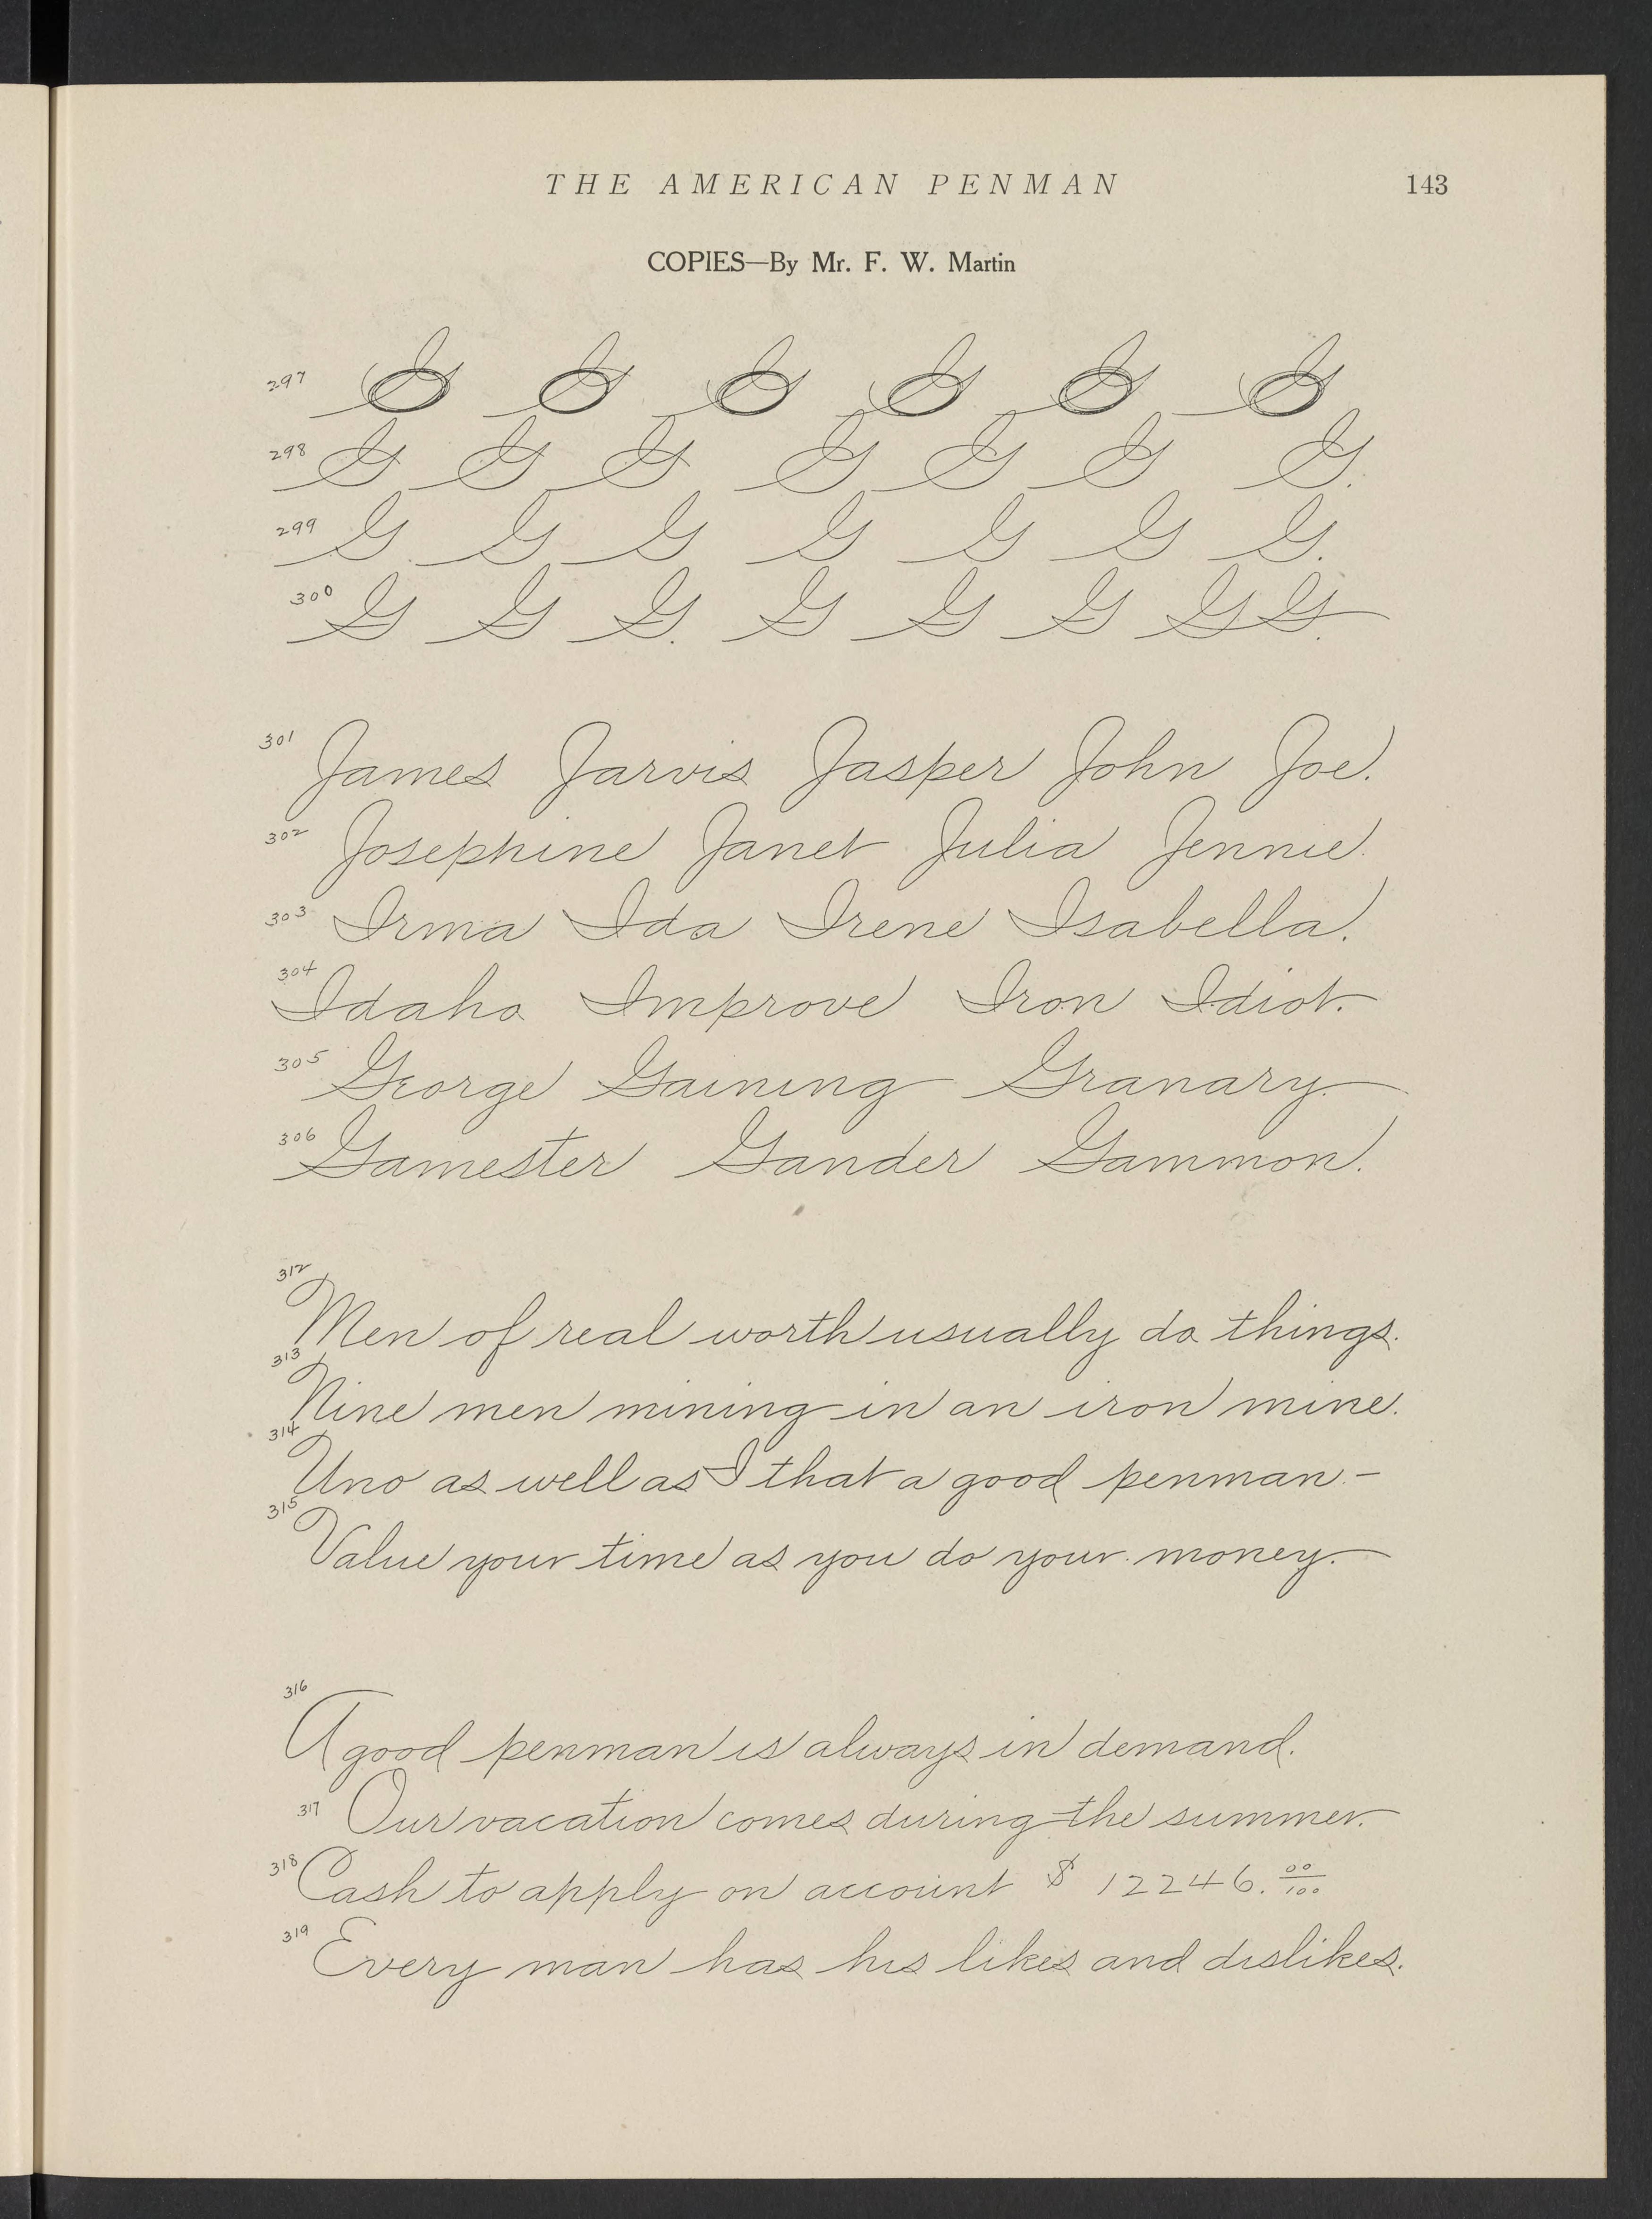 THE AMERICAN PENMAN 143
COPIES—By Mr. F. W. Martin
297 G G G G G G
298 G G G G G G G.
299 G G G G G G G.
300 G G G. G G G G G.
301 James Jarvis Jasper John Joe.
302 Josephine Janet Julia Jennie.
303 Irma Ida Irene Isabella.
304 Idaho Improve Iron Idiot.
305 George Gaining Granary.
306 Gamester Gander Gammon.
312 Men of real worth usually do things.
313 Nine men mining in an iron mine.
314 Uno as well as I that a good penman.-
315 Value your time as you do your money.
316 A good penman is always in demand.
317 Our vacation comes during the summer.
318 Cash to apply on account $ 12246. 00/100
319 Every man has his likes and dislikes.